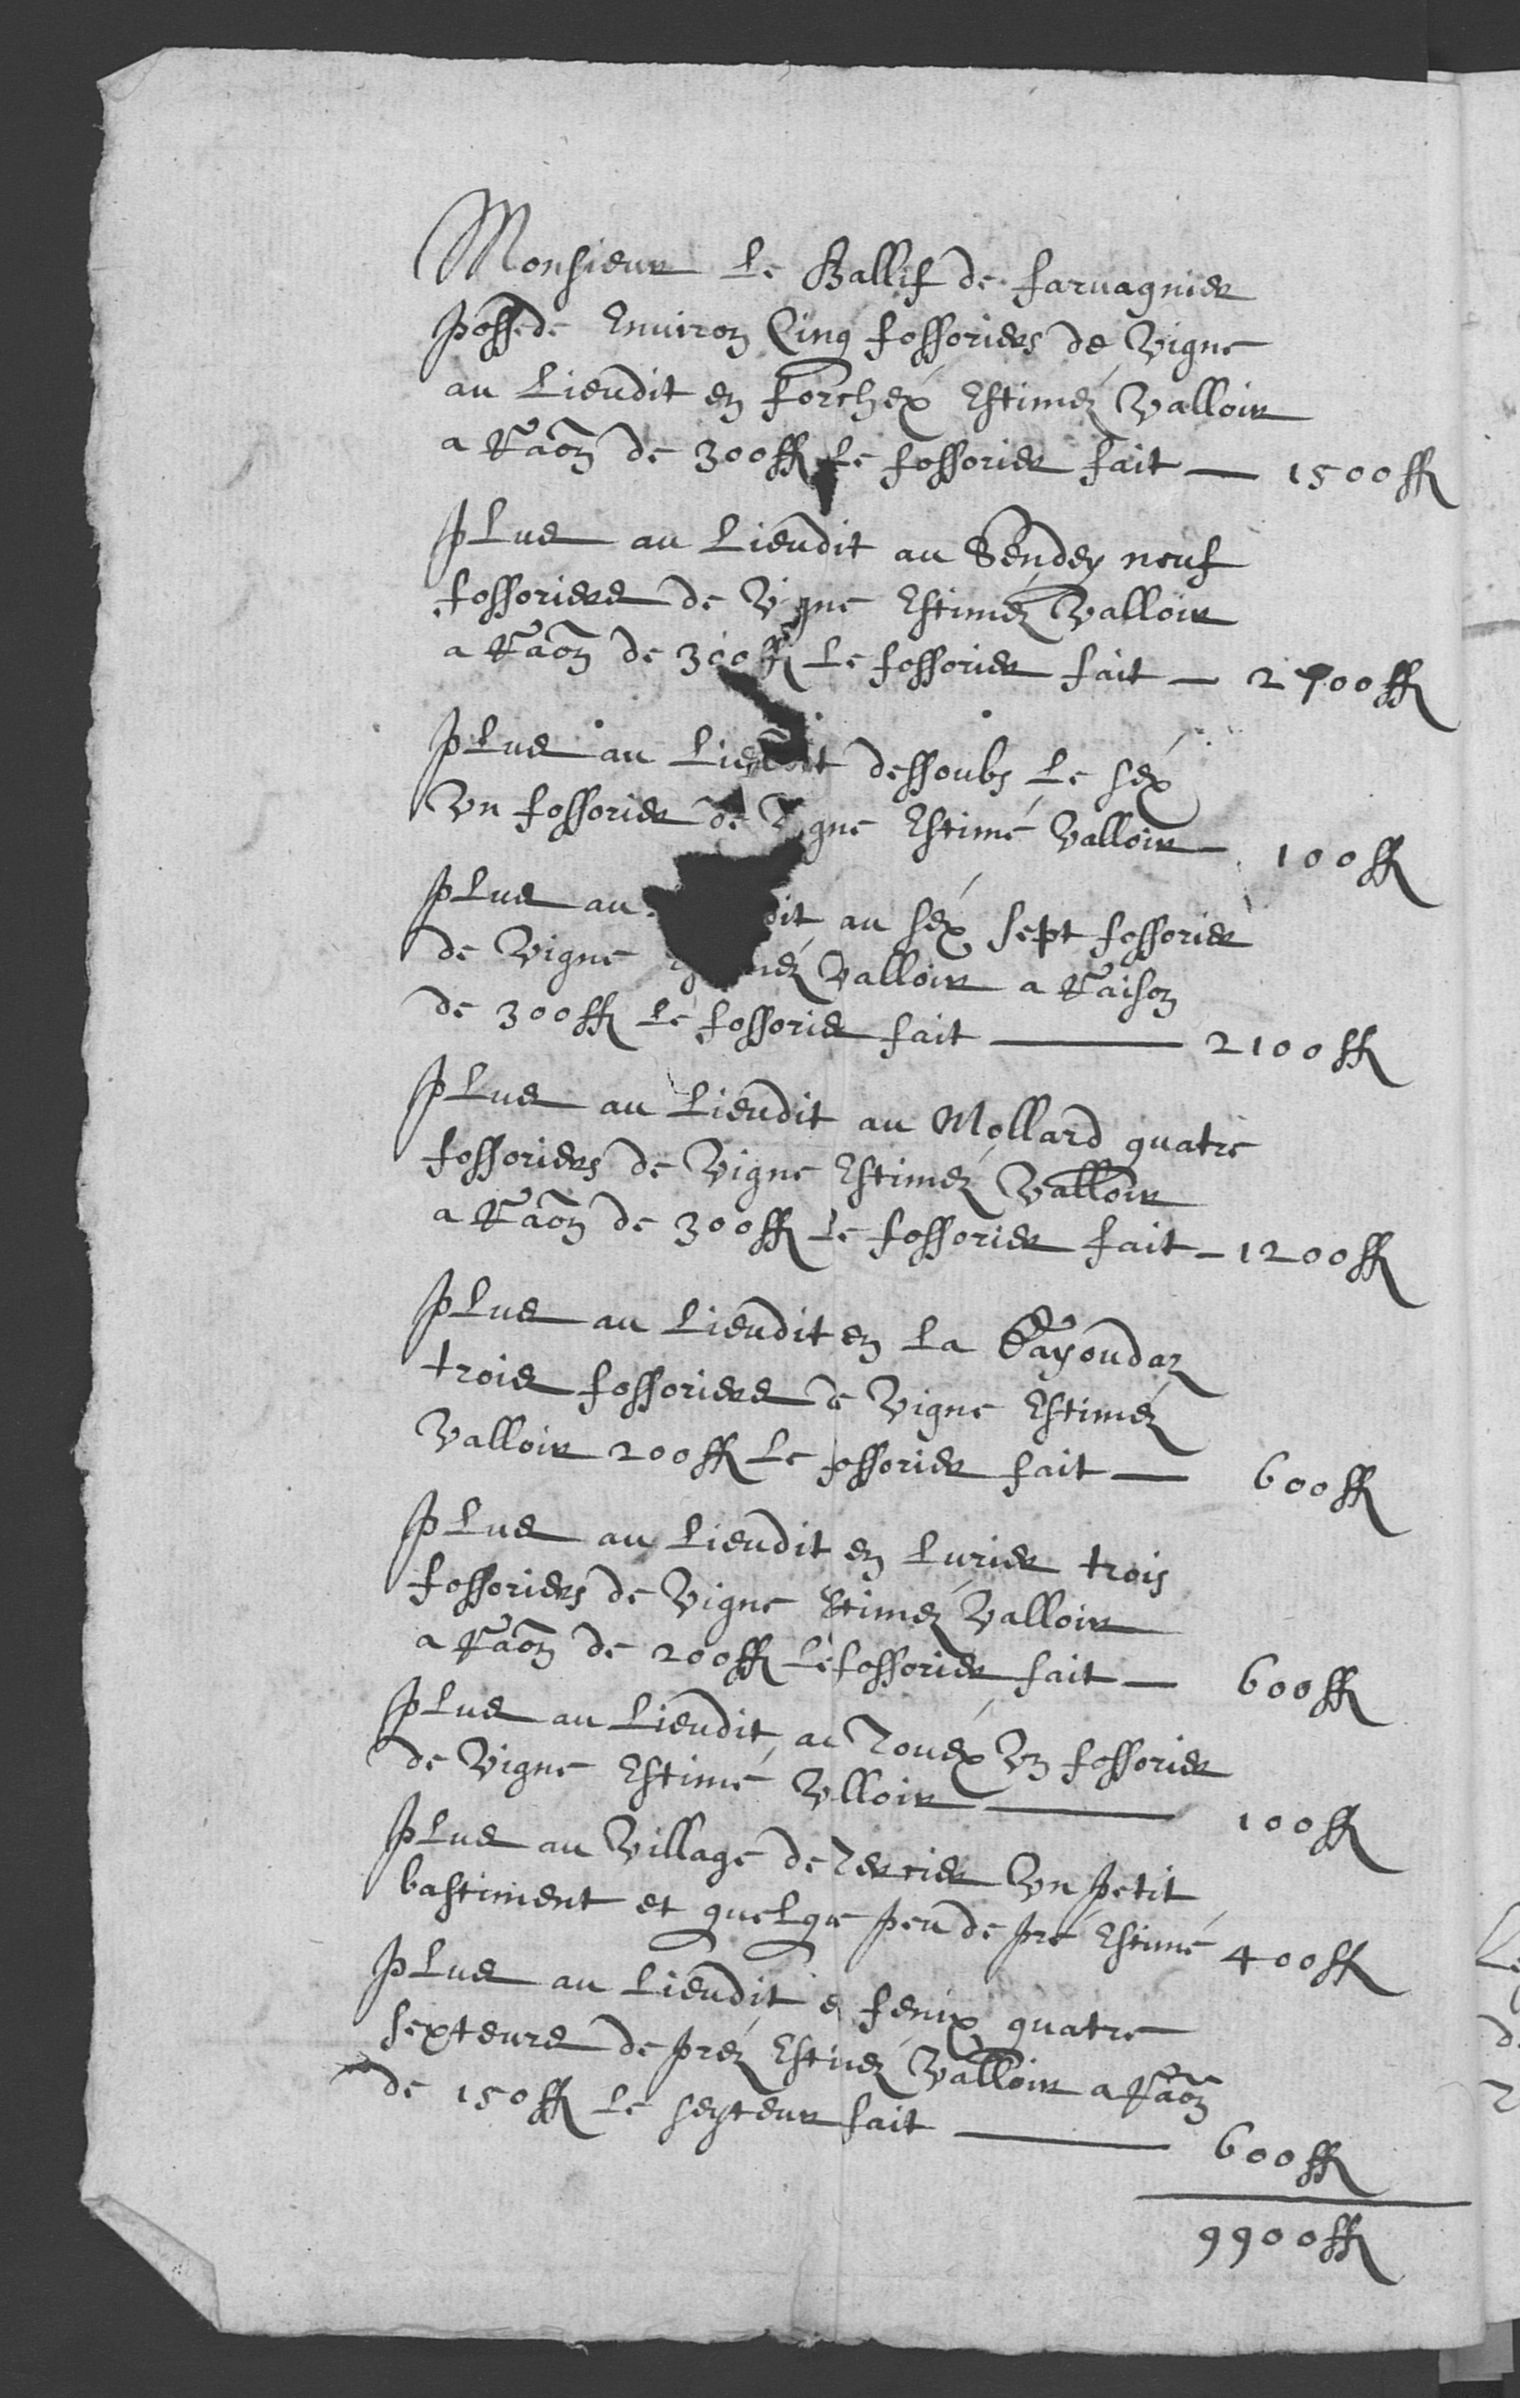 Monsieur le Ballif de faruagnier
possede Enuiron Cinq fossoriers de Vigne
au Lieudit en forchex Estiméz Valloir
a Raon de 300 ff le fossorier fait — 1500 ff
Plus au Lieudit au Sendey neuf
fossoriers de Vigne Estiméz Valloir
a Raon de 300 ff Le fossorier fait — 2700 ff
Plus au Lieudit dessoubs Le séx
Vn fossorier de Vigne Estimé Valloir — 100 ff
Plus au dit au séx sept fossorier
de Vigne Valloir a Raison
de 300 ff Le fossorier fait — 2100 ff
Plus au Lieudit au Mollard quatre
fossoriers de Vigne Estiméz Valloir
a Raon de 300 ff Le fossorier fait — 1200 ff
Plus au Lieudit en La
trois fossoriers de Vigne Estiméz
Valloir 200 ff Le fossorier fait — 600 ff
Plus au Lieudit en Lurier trois
fossoriers de Vigne Estiméz Valloir
a Raon de 200 ff Le fossorier fait — 600 ff
Plus au Lieudit au Vn fossorier
de Vigne Estimé Vlloir — 100 ff
Plus au Village de Tercier Vn petit
bastiment et quelque peu de pré Estimé 400 ff
Plus au Lieudit quatre
sexteurs de préz Valloir a Raon
de 150 ff Le seyteur fait — 600 ff
9900 ff